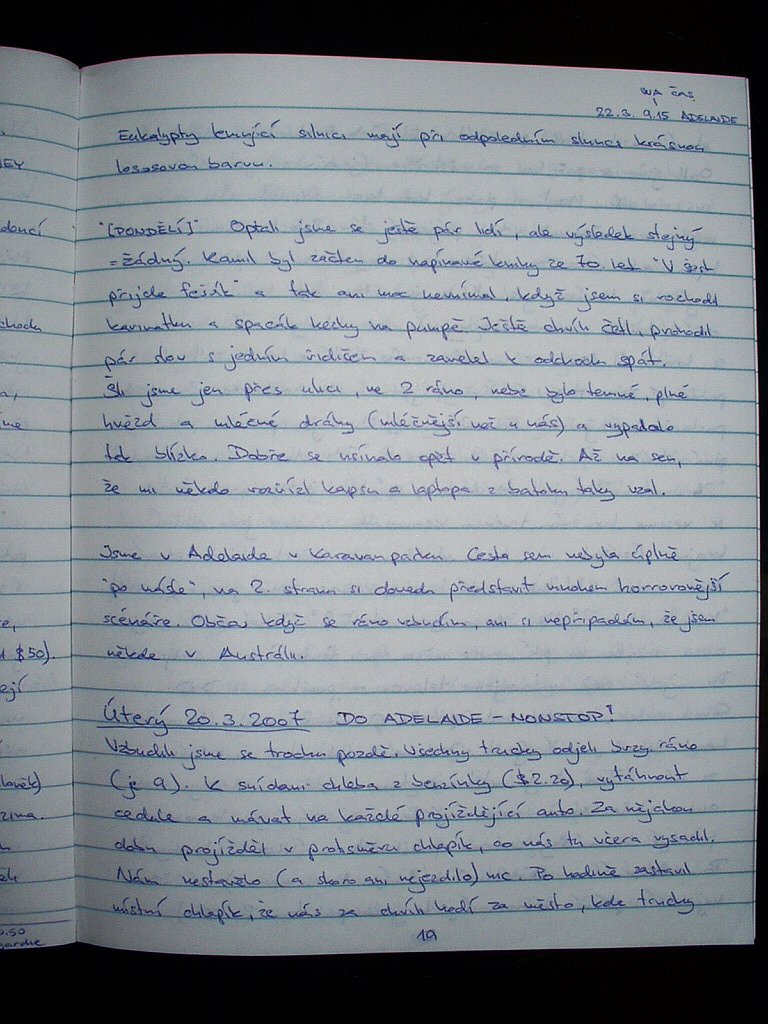 WA čas
22.3. 9.15 ADELAIDE
Eukalypty lemující silnici mají při odpoledním slunci krásnou
lososovou barvu.
"[PONDĚLÍ]" Optali jsme se ještě pár lidí, ale výsledek stejný
= žádný. Kamil byl začten do napínavé knihy ze 70. let "V šest
přijde fešák" a tak ani moc nevnímal, když jsem si rozhodil
karimatku a spacák kousky na pumpě. Ještě chvíli četl, prohodil
pár slov s jedním řidičem a zavelel k odchodu spát.
Šli jsme jen přes ulici, ve 2 ráno, nebe bylo temné, plné
hvězd a mléčné dráhy (mléčnější než u nás) a vypadalo
tak blízko. Dobře se usínalo opět v přírodě. Až na sen,
že mi někdo rozřízl kapsu a laptopa z batohu taky vzal.
Jsme v Adelaide v Karavanparku. Cesta sem nebyla úplně
"po másle", na 2. stranu si dovedu představit mnohem horrorovnější
scénáře. Občas když se ráno vzbudím, ani si nepřipadám, že jsem
někde v Austrálii.
Úterý 20.3.2007 DO ADELAIDE - NONSTOP!
Vzbudili jsme se trochu pozdě. Všechny trucky odjeli brzy ráno
(je 9). K snídani chleba z benzínky ($2.20), vytáhnout
cedule a mávat na každé projíždějící auto. Za nějakou
dobu projížděl v protisměru chlapík, co nás tu včera vysadil.
Nám nestavělo (a skoro ani nejezdilo) nic. Po hodině zastavil
místní chlapík, že nás za chvíli hodí za město, kde trucky
19
EY
doucí
chodu
u $50).
ejí
zima.
0.50
gardie